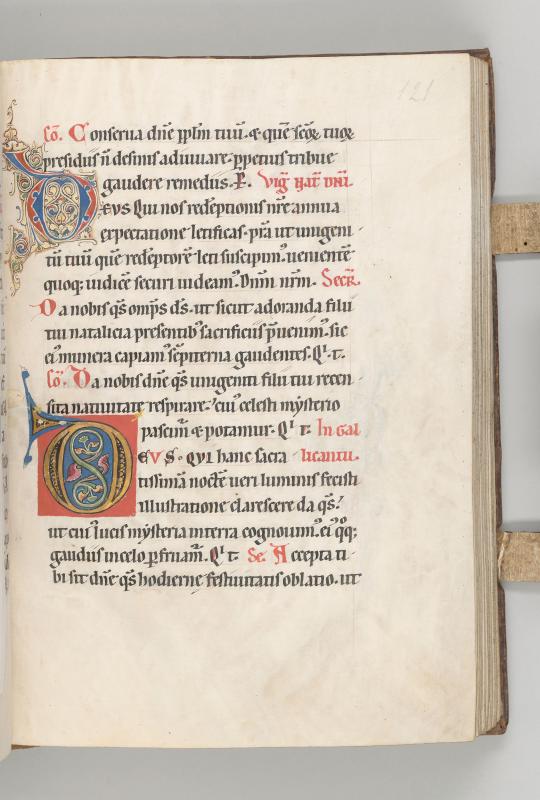 121
Cō. Conserva dn̄e pp̄lm tuū. & quē scōꝝ tuoꝝ
presidiis n̄ desinis adiuvare. ꝑpetuis tribue
gaudere remediis. P. Vig̃ nat̃ dn̄i.
Deus Qui nos redēptionis nr̄e annua
expectatione letificas. p̄ra ut unigeni
tū tuū quē redēptorē leti suscipim᷒. venientē
quoq; iudicē securi videam᷒. Dn̄m nr̄m. Secr̄.
Da nobis q̄s omp̄s d̄s. ut sicut adoranda filii
tui natalicia presentib᷒ sacrificiis p̄venim᷒. sic
ei᷒ munera capiam᷒ sēpiterna gaudentes. Qı. t.
Cō. Da nobis dn̄e q̄s unigeniti filii tui recen
sita nativitate respirare. cui᷒ celesti mysterio
pascim᷒ & potamur. Qı t. In gal
Deus. qui hanc sacra licantu.
tissimā noctē veri luminis fecisti
illustratione clarescere da q̄s.
ut cui᷒ lucis mysteria in terra cognovim᷒. ei᷒ q̊q;
gaudiis in celo ꝑfruam᷒. Qı t. Se. Accepta ti
bi sit dn̄e q̄s hodierne festivitatis oblatio. ut